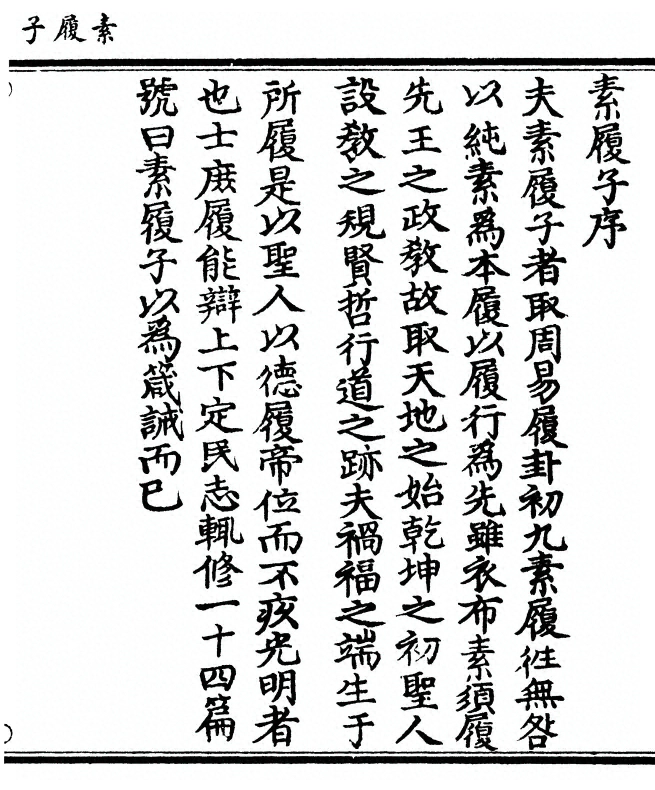 素履子
素履子序
夫素履子者取周易履卦初九素履徃無咎
以純素爲本履以履行爲先雖衣布素須履
先王之政敎故取天地之始乾坤之初聖人
設敎之規賢哲行道之跡夫禍福之端生于
所履是以聖人以德履帝位而不疚光明者
也士庶履能辯上下定民志輒修一十四篇
號曰素履子以爲箴誡而已